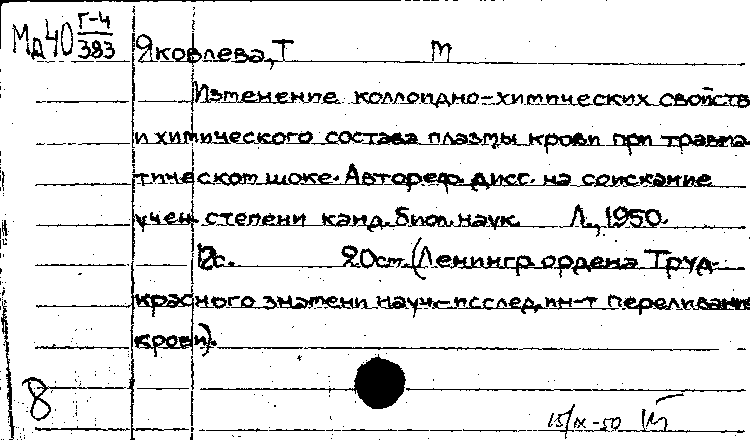 Мд40 Г-4/383
Яковлева, Т М
Изменение коллоидно-химических свойств
и химического состава плазмы крови при травма-
тическом шоке. Автореф. дисс. на соискание
учен. степени канд. биол. наук. Л., 1950.
12с. 20см. (Ленингр. ордена Труд.
красного знамени науч.-исслед. ин-т переливания
крови).
8
15/IX-50